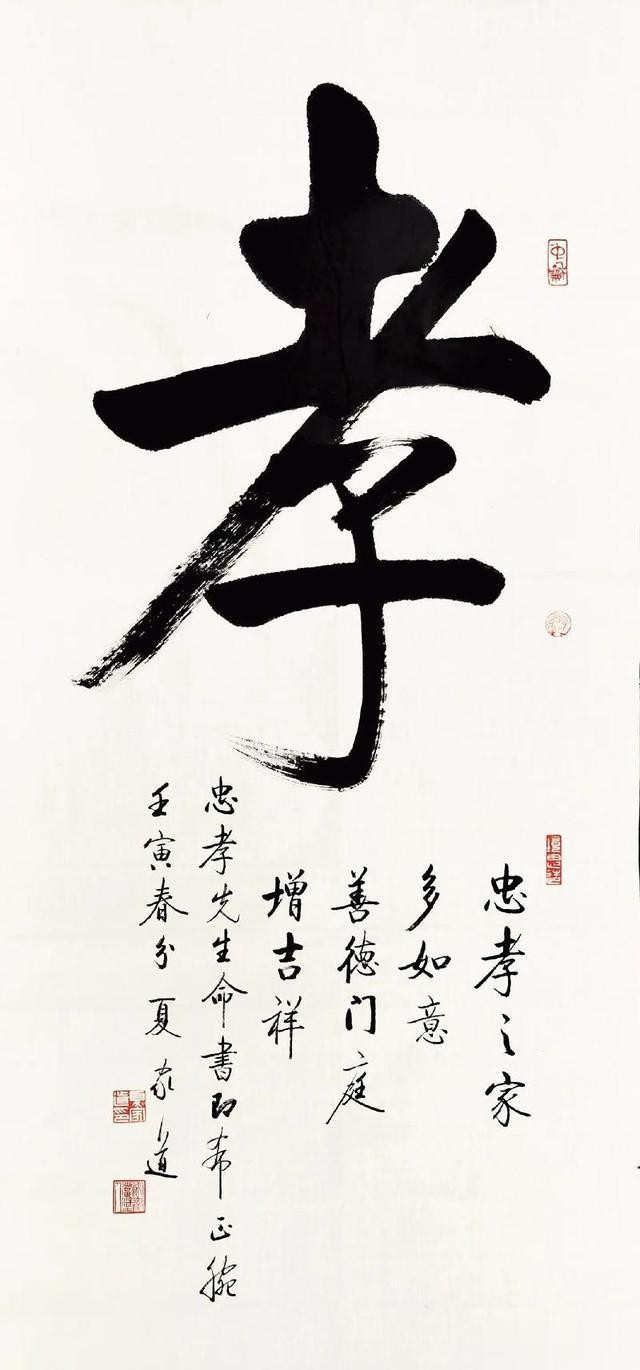 孝
忠孝之家
多如意
善德门庭
增吉祥
忠孝先生命书即希正腕
壬寅春分夏家道